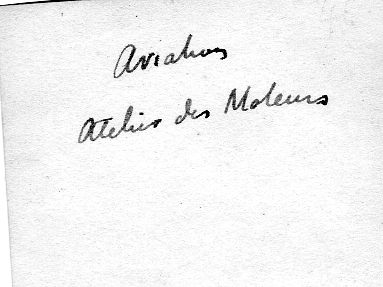 Aviation
Atelier des Moteurs